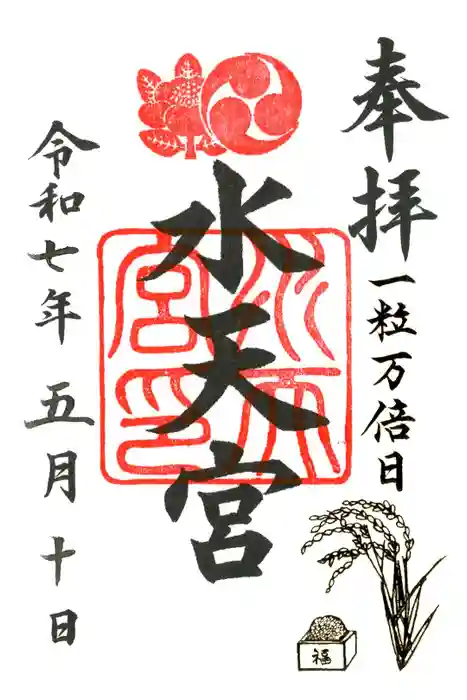 奉拝
一粒万倍日
水天宮
水天宮印
令和七年 五月 十日
福